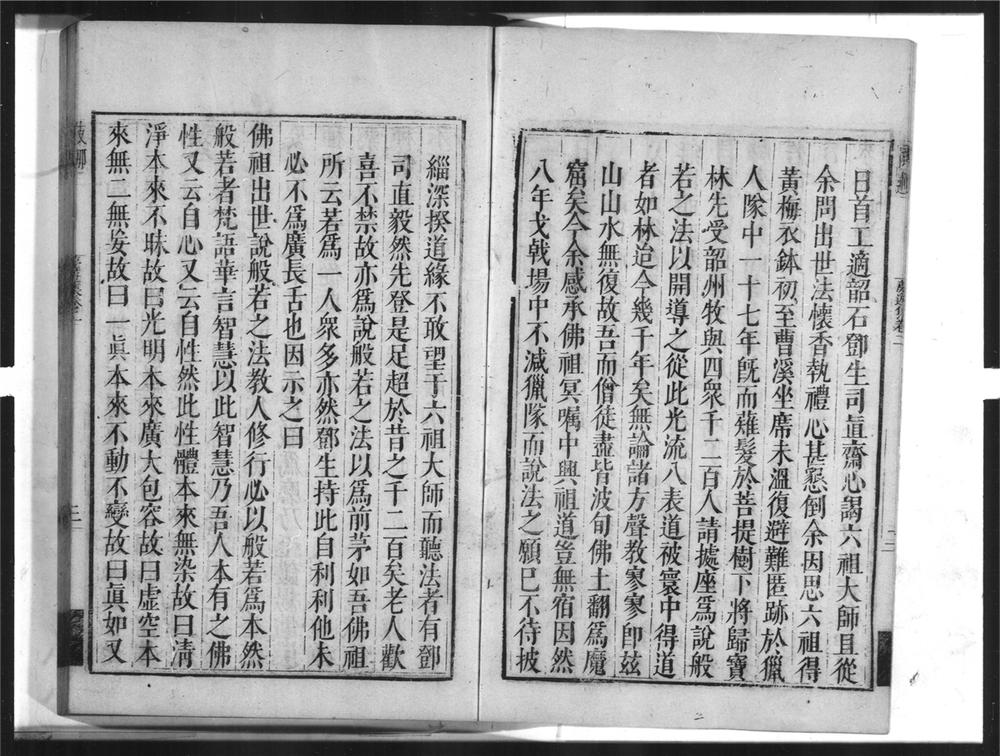 日首工適韶石鄧生司直齋心謁六祖大師且從
余問出世法懷香執禮心甚懇倒余因思六祖得
黃梅衣鉢初至曹溪坐席未溫復避難匿跡於獵
人隊中一十七年既而薙髮於菩提樹下將歸寶
林先受韶州牧與四眾千二百人請據座為說般
若之法以開導之從此光流八表道被寰中得道
者如林迨今幾千年矣無論諸方聲教寥寥卽玆
山山水無復故吾而僧徒盡皆波旬佛土翻為魔
窟矣今余感承佛祖冥囑中興祖道豈無宿因然
八年戈戟場中不減獵隊而說法之願已不待披
緇深揆道緣不敢望于六祖大師而聽法者有鄧
司直毅然先登是足超於昔之千二百矣老人歡
喜不禁故亦為說般若之法以為前茅如吾佛祖
所云若為一人眾多亦然鄧生持此自利利他未
必不為廣長舌也因示之曰
佛祖出世說般若之法教人修行必以般若為本然
般若者梵語華言智慧以此智慧乃吾人本有之佛
性又云自心又云自性然此性體本來無染故曰清
淨本來不昧故曰光明本來廣大包容故曰虛空本
來無二無妄故曰一真本來不動不變故曰真如又